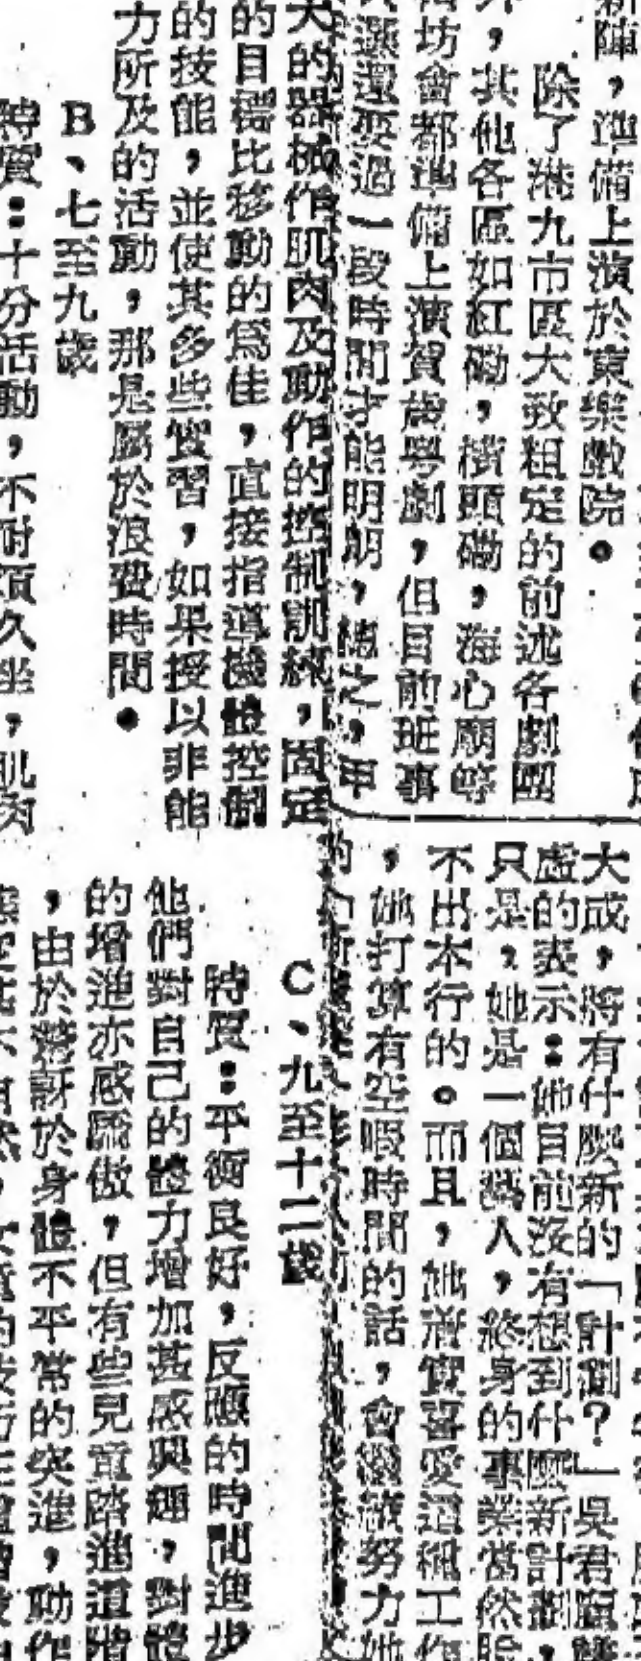 新陣，準備上演於東樂戲院。
除了港九市區大致粗定的前述各劇團
外，其他各區如紅磡，橫頭磡，海心廟等
街坊會都準備上演賀歲粵劇，但目前班事
選還要過一段時間才能明朗，總之，甲
大的器械作肌肉及動作的控制訓練，固定
的目標比移動的為佳，直接指導機體控制
的技能，並使其多些實習，如果授以非能
力所及的活動，那是屬於浪費時間。
B、七至九歲
特質：十分活動，不耐煩久坐，肌肉
大成，將有什麽新的「計劃？」吳君
虛的表示：她目前沒有想到什麼新計劃，
只是，她是一個藝人，終身的事業當然脫
不出本行的。而且，她確實喜愛這種工作
，她打算有空暇時間的話，會繼續努力她
C、九至十二歲
特質：平衡良好，反應的時間進步
他們對自己的體力增加甚感興趣，對體
的增進亦感驕傲，但有些兒童踏進這階
，由於驚訝於身體不平常的突進，動作